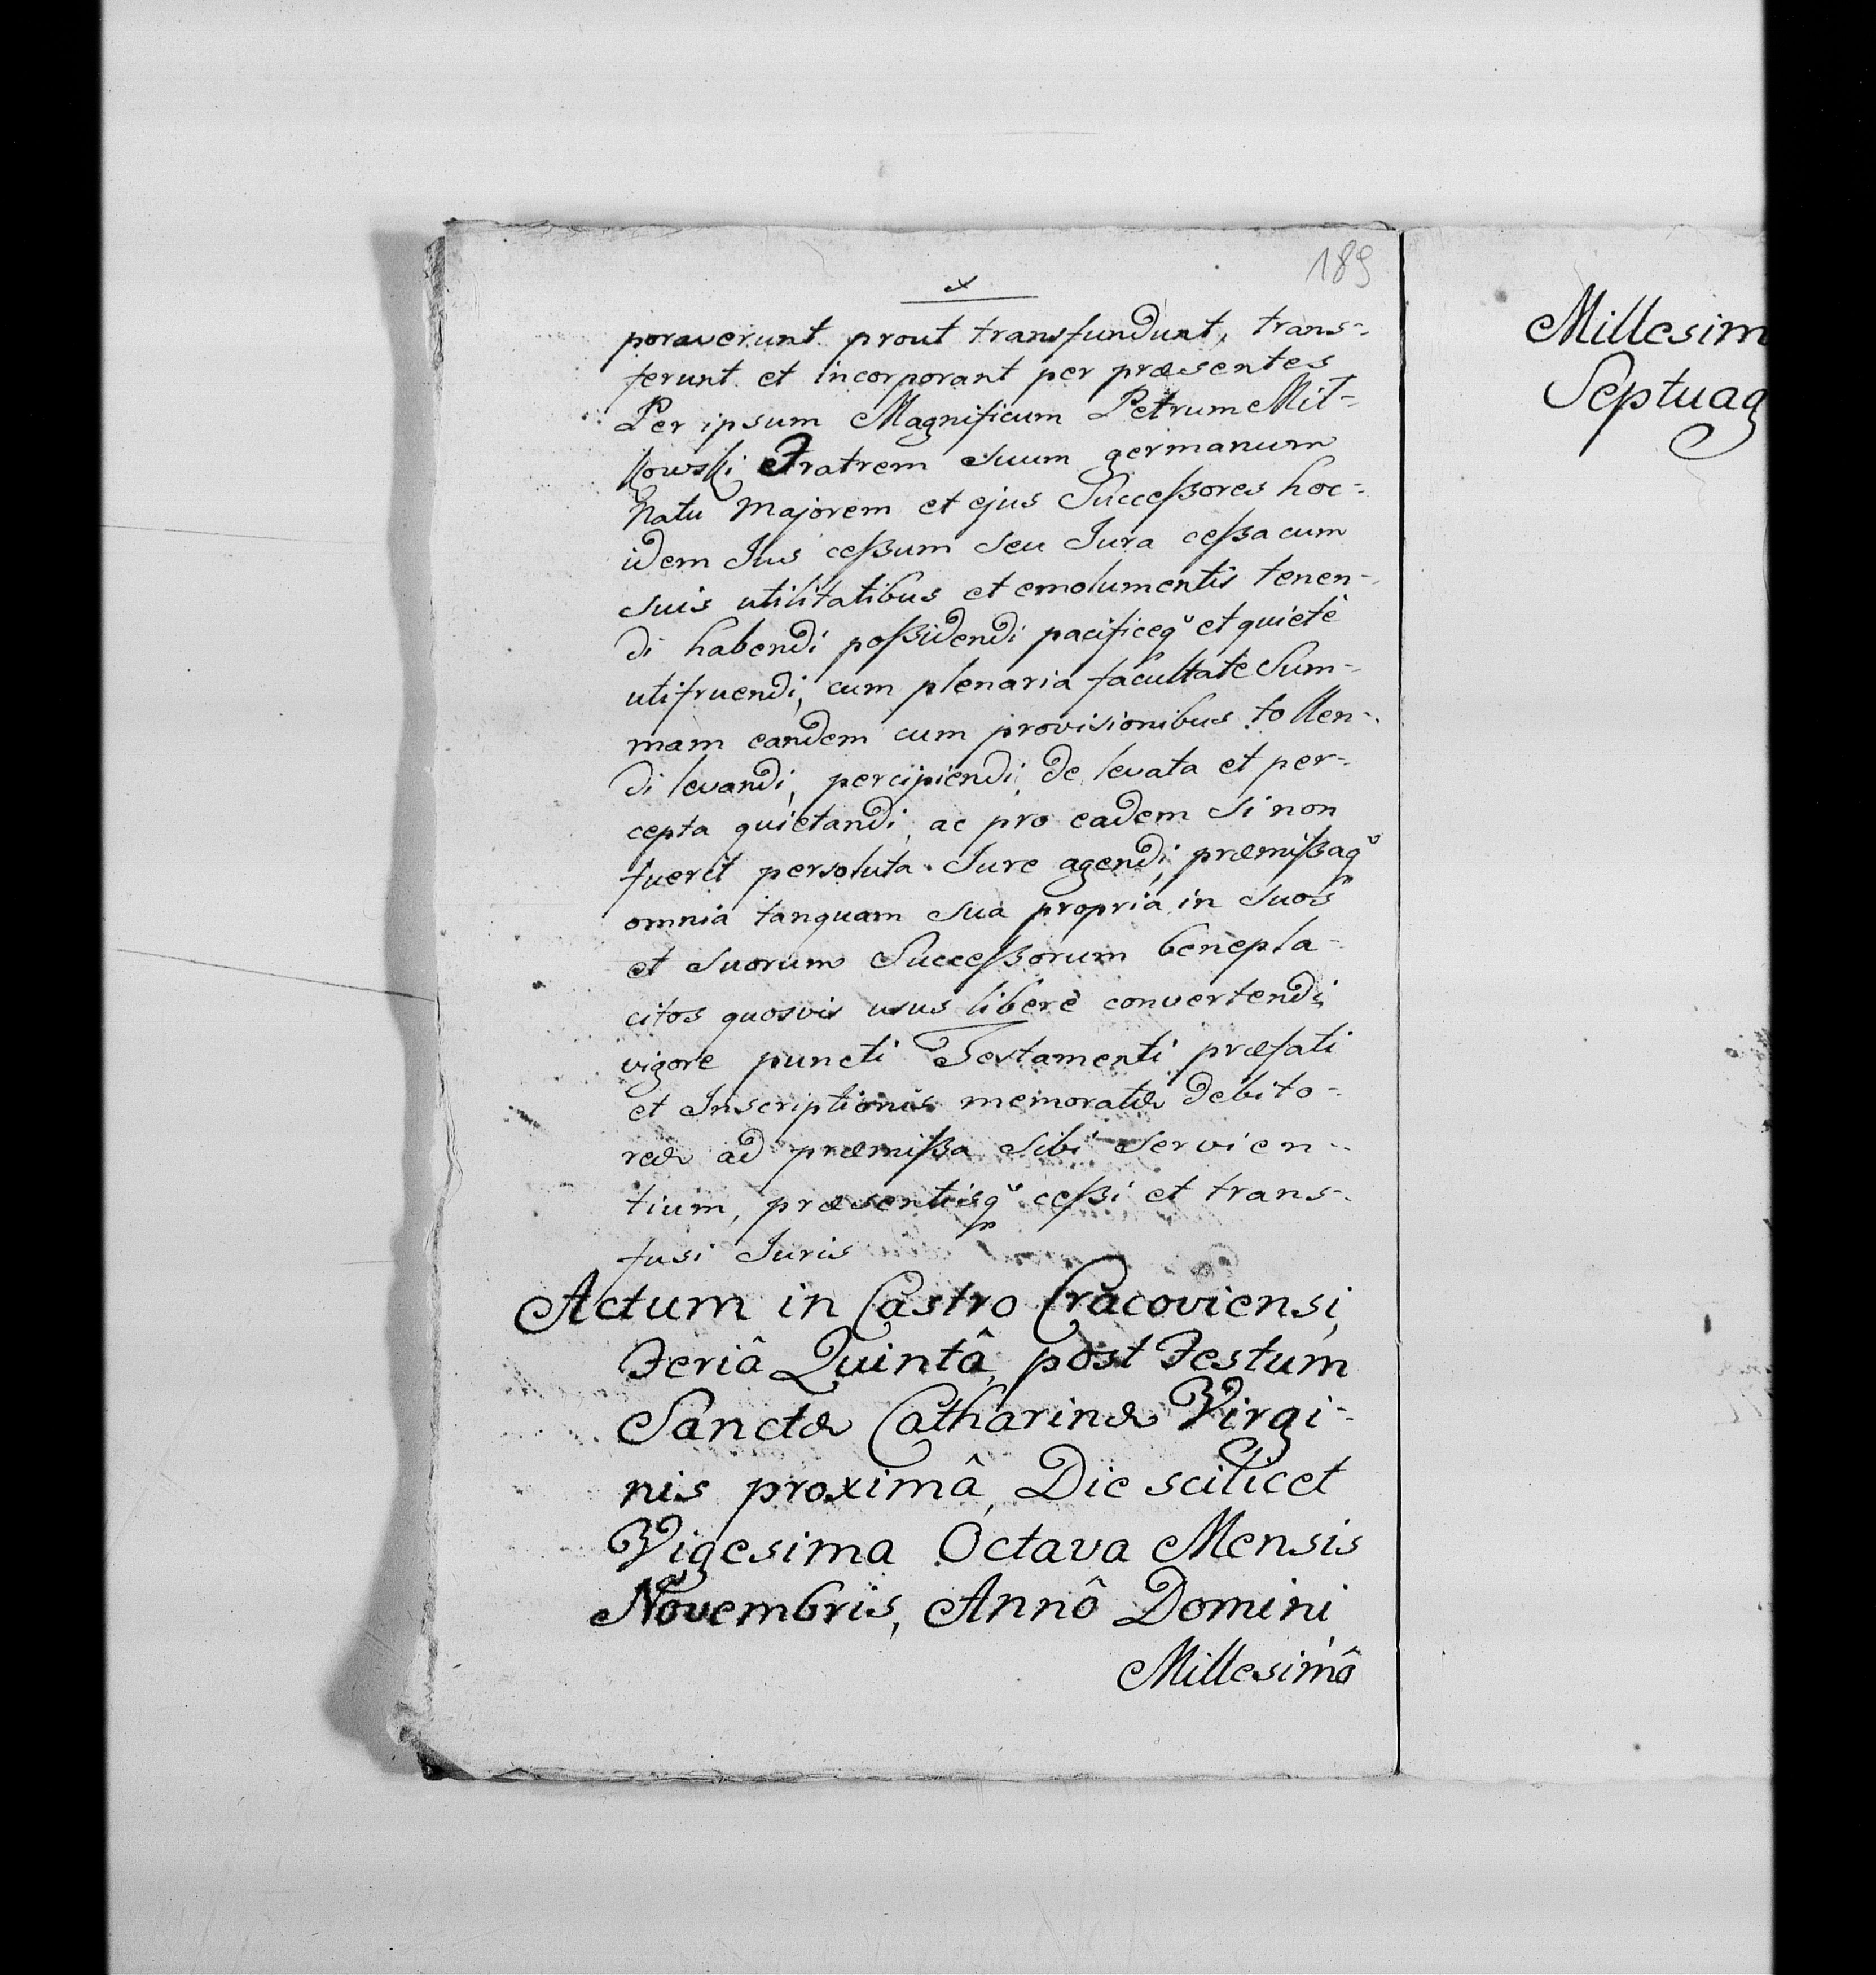 189
x
poraverunt prout transfundunt, trans-
ferunt et incorporant per præsentes
Per ipsum Magnificum Petrum Mit-
kowski Fratrem suum germanum
Natu Majorem et ejus Succeßores hoc-
idem Jus ceßum seu Jura ceßa cum
suis utilitatibus et emolumentis tenen-
di habendi poßidendi pacificeq et quietè
utifruendi, cum plenaria facultate Sum-
mam eandem cum provisionibus tollen-
di levandi, percipiendi, de levata et per-
cepta quietandi, ac pro eadem si non
fuerit persoluta Jure agendi, præmißaq
omnia tanquam sua propria in suos
et suorum Succeßorum benepla-
citos quosvis usus liberè convertendi
vigore puncti Testamenti præfati
et Inscriptionis memoratæ debito-
reæ ad præmißa sibi servien-
tium, præsentisq ceßi et trans-
fusi Juris
Actum in Castro Cracoviensi,
Feriâ Quintâ, post Festum
Sanctæ Catharinæ Virgi-
nis proximâ, Die scilicet
Vigesima Octava Mensis
Novembris, Annô Domini
Millesimô
Millesim
Septuag